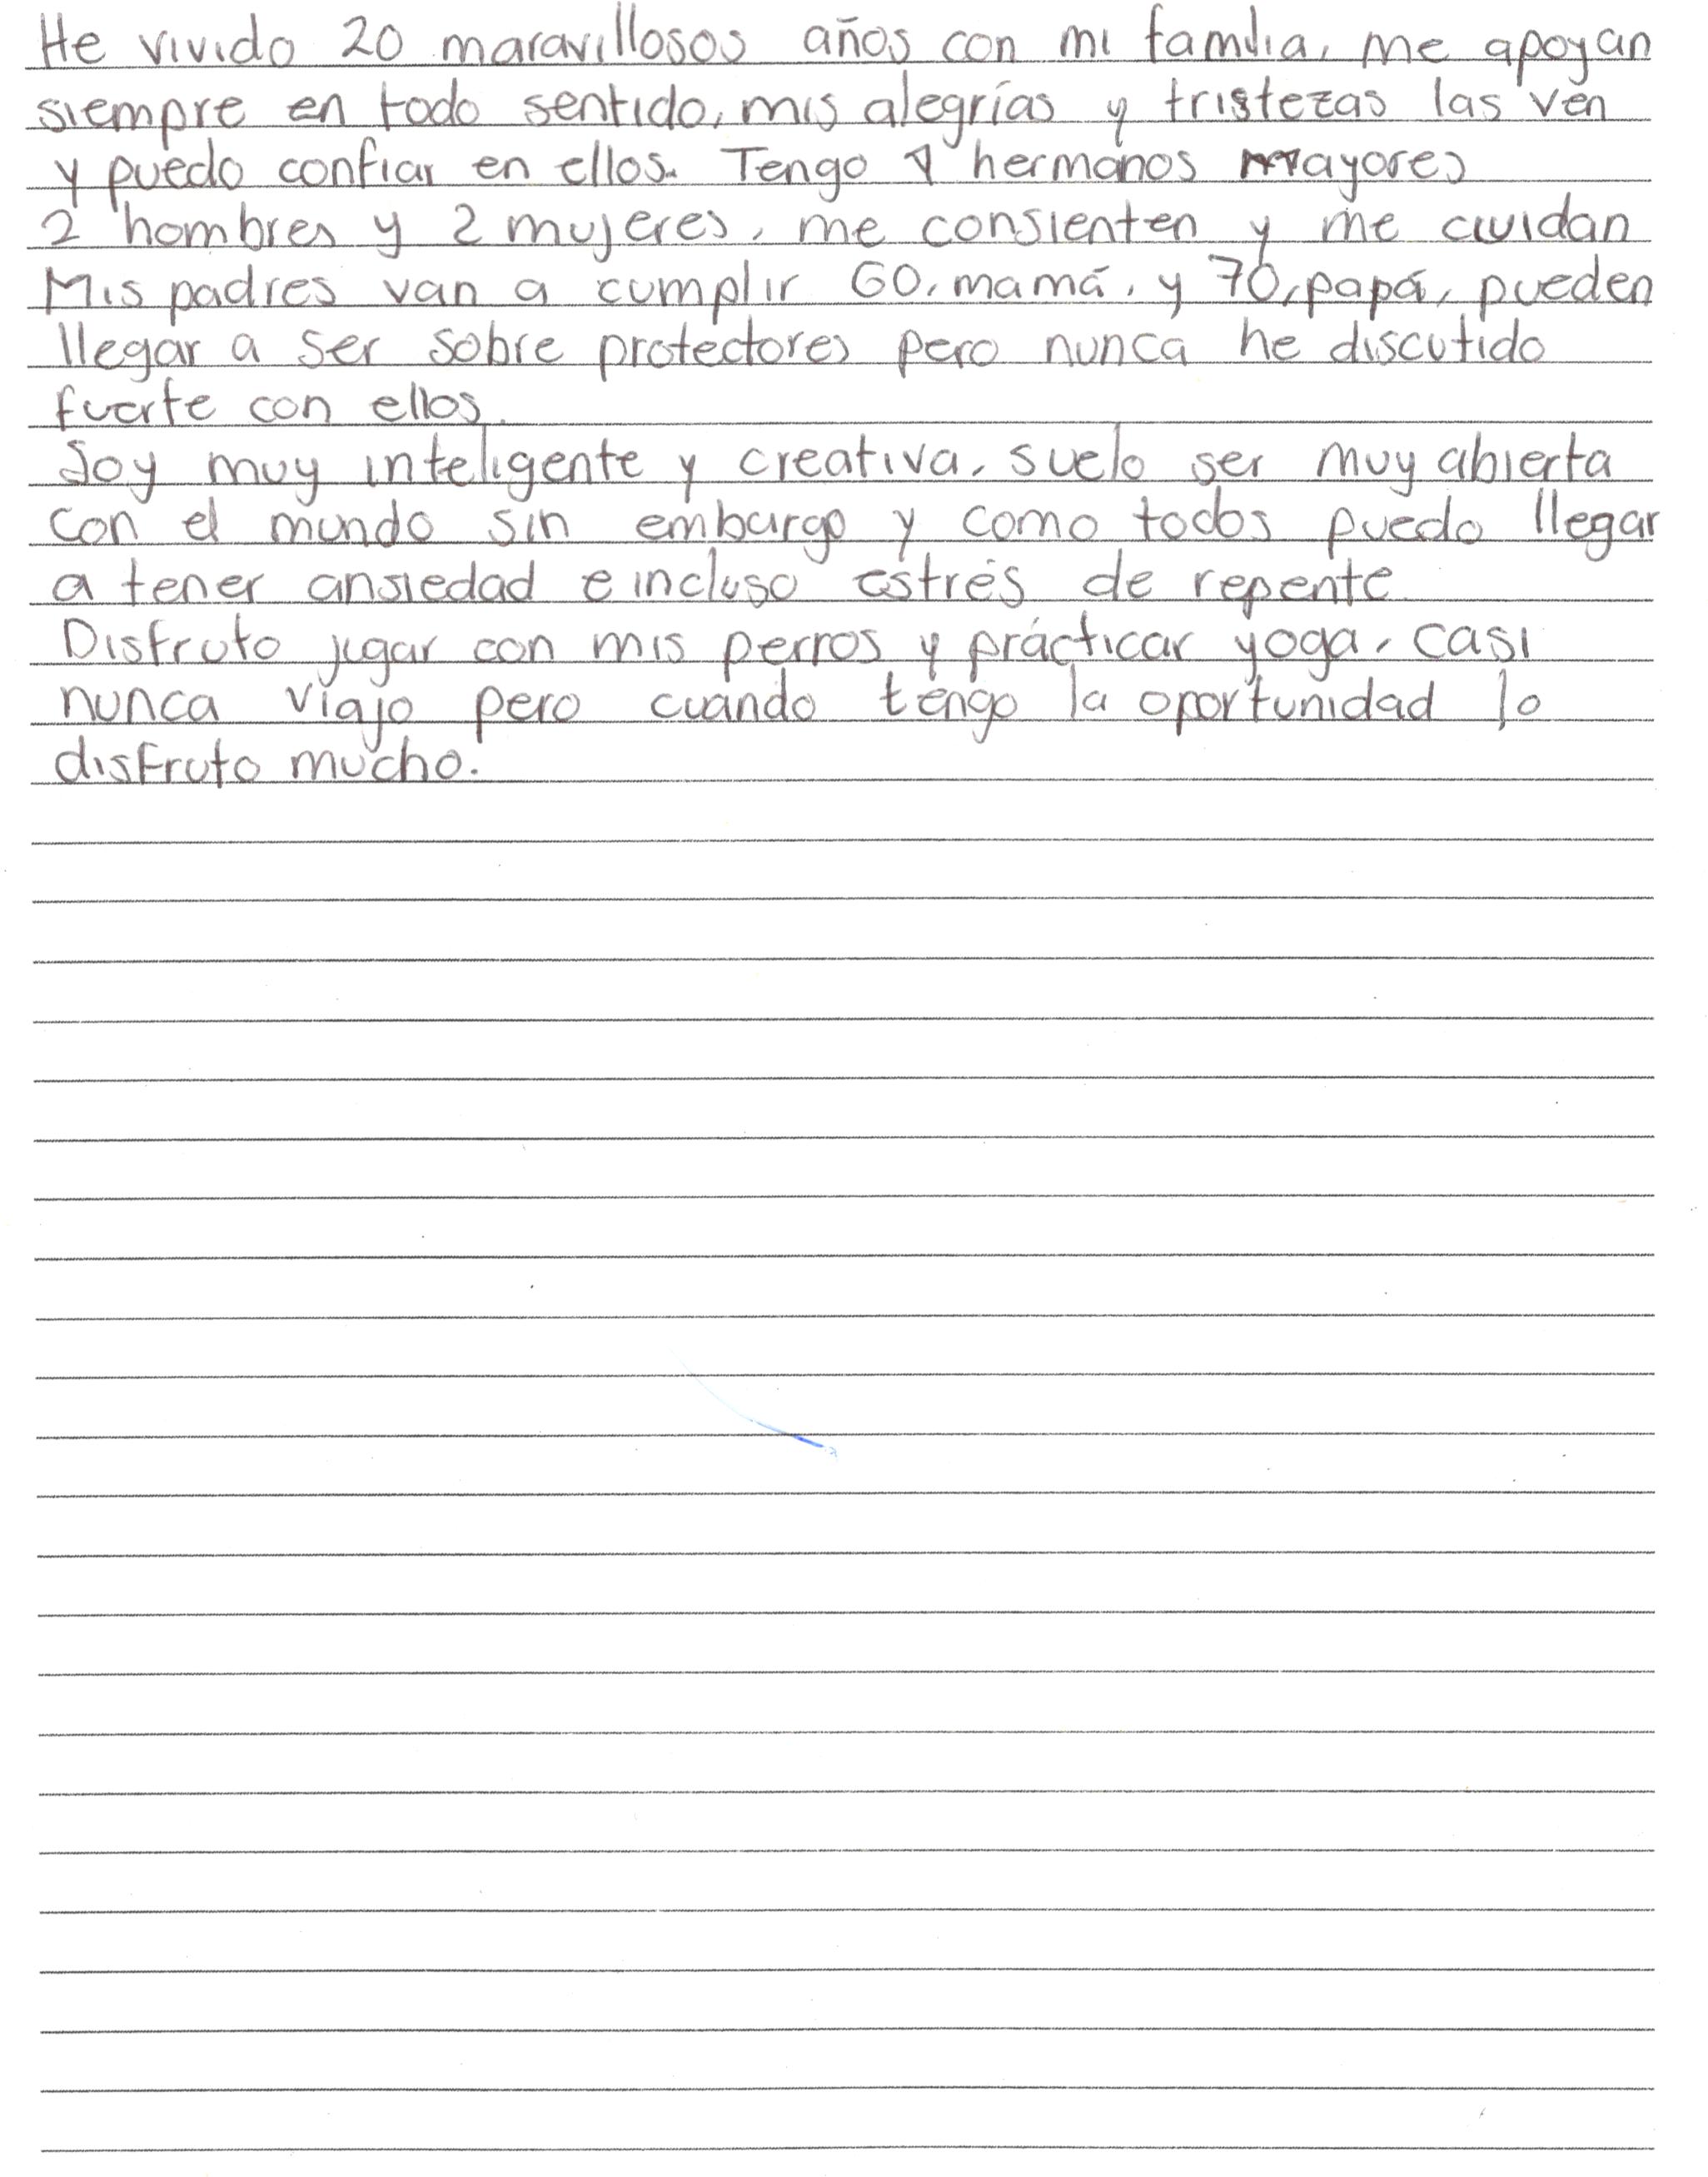 He vivido 20 maravillosos años con mi familia, me apoyan
siempre en todo sentido, mis alegrías y tristezas las ven
y puedo confiar en ellos. Tengo 4 hermanos mayores
2 hombres y 2 mujeres, me consienten y me cuidan
Mis padres van a cumplir 60, mamá, y 70, papá, pueden
llegar a ser sobre protectores pero nunca he discutido
fuerte con ellos.
Soy muy inteligente y creativa, suelo ser muy abierta
con el mundo sin embargo y como todos puedo llegar
a tener ansiedad e incluso estrés de repente
Disfruto jugar con mis perros y prácticar yoga, casi
nunca viajo pero cuando tengo la oportunidad lo
disfruto mucho.